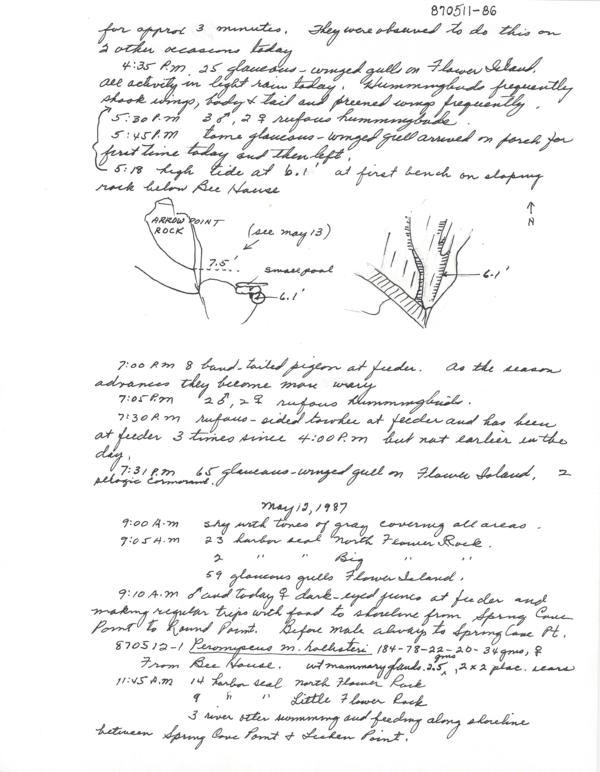 870511-86
for approx 3 minutes. They were observed to do this on
2 other occasions today
4:35 P.M. 25 glaucous-winged gulls on Flower Island.
all activity in light rain today. Hummingbirds frequently
shook wings, body & tail and preened wings frequently.
5:30 P.M. 3 ♂, 2 ♀ rufous hummingbirds.
5:45 P.M tame glaucous-winged gull arrived on porch for
first time today and then left.
5:18 high tide at 6.1' at first bench on sloping
rock below Bee House
ARROW POINT
ROCK
(see may 13)
7.5'
small pool
6.1'
↑
N
6.1'
7:00 P.M 8 band-tailed pigeon at feeder. As the season
advances they become more wary
7:05 P.M 2 ♂, 2 ♀ rufous hummingbirds.
7:30 P.M rufous-sided towhee at feeder and has been
at feeder 3 times since 4:00 P.M but not earlier in the
day.
7:31 P.M 65 glaucous-winged gull on Flower Island. 2
pelagic cormorant.
May 12, 1987
9:00 A.M sky with tones of gray covering all areas.
9:05 A.M 23 harbor seal North Flower Rock.
2 " " Big " "
59 glaucous gulls Flower Island.
9:10 A.M ♂ and today ♀ dark-eyed junco at feeder and
making regular trips with food to shoreline from Spring Cove
Point to Round Point. Before male always to Spring Cove Pt.
870512-1 Peromyscus m. hollisteri 184-78-22-20-34 gms, ♀
From Bee House. wt mammary glands 2.5 gms, 2 x 2 plac. scars
11:45 A.M 14 harbor seal North Flower Rock
9 " " Little Flower Rock
3 river otter swimming and feeding along shoreline
between Spring Cove Point & Lichen Point.